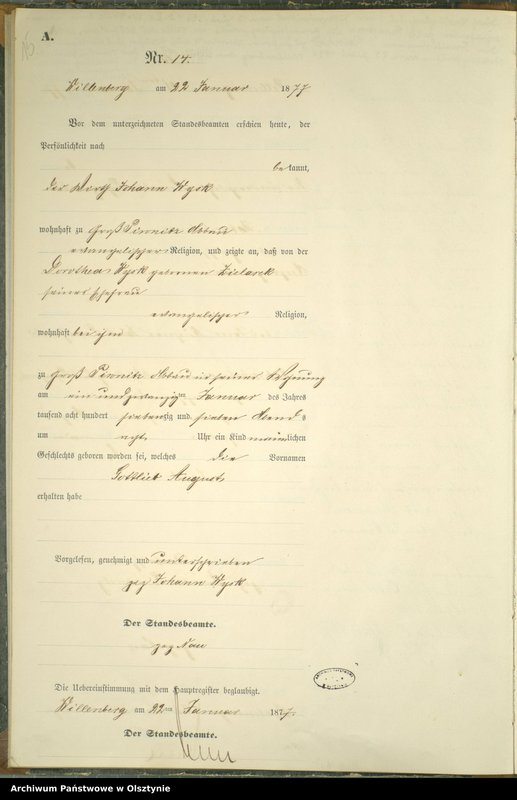 A.
Nr. 14.
Willenberg am 22 Januar 1877
Vor dem unterzeichneten Standesbeamten erschien heute, der
Persönlichkeit nach
bekannt,
der Wirth Johann Wysk
wohnhaft zu Groß Piwnitz Abbau
evangelischer Religion, und zeigte an, daß von der
Dorothea Wysk geborenen Zielasek
seiner Ehefrau
evangelischer Religion,
wohnhaft bei ihm
zu Groß Piwnitz Abbau in seiner Wohnung
am ein und zwanzigten Januar des Jahres
tausend acht hundert siebenzig und sieben Abends
um acht Uhr ein Kind männlichen
Geschlechts geboren worden sei, welches die Vornamen
Gottlieb August
erhalten habe
Vorgelesen, genehmigt und unterschrieben
gez Johann Wysk
Der Standesbeamte.
gez Nau
Die Uebereinstimmung mit dem Hauptregister beglaubigt.
Willenberg am 22ten Januar 1877.
Der Standesbeamte.
Archiwum Państwowe w Olsztynie